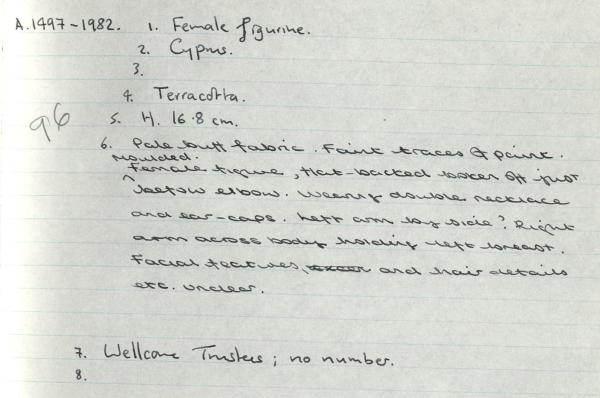 A.1497-1982. 1. Female figurine.
2. Cyprus.
3.
4. Terracotta.
96
5. H. 16.8 cm.
6. Pale buff fabric. Faint traces of paint.
Moulded.
Female figure, flat-backed broken off just
^ below elbow. Wearing double necklace
and ear-caps. Left arm by side? Right
arm across body holding left breast.
Facial features, and hair details
etc. unclear.
7. Wellcome Trustees; no number.
8.